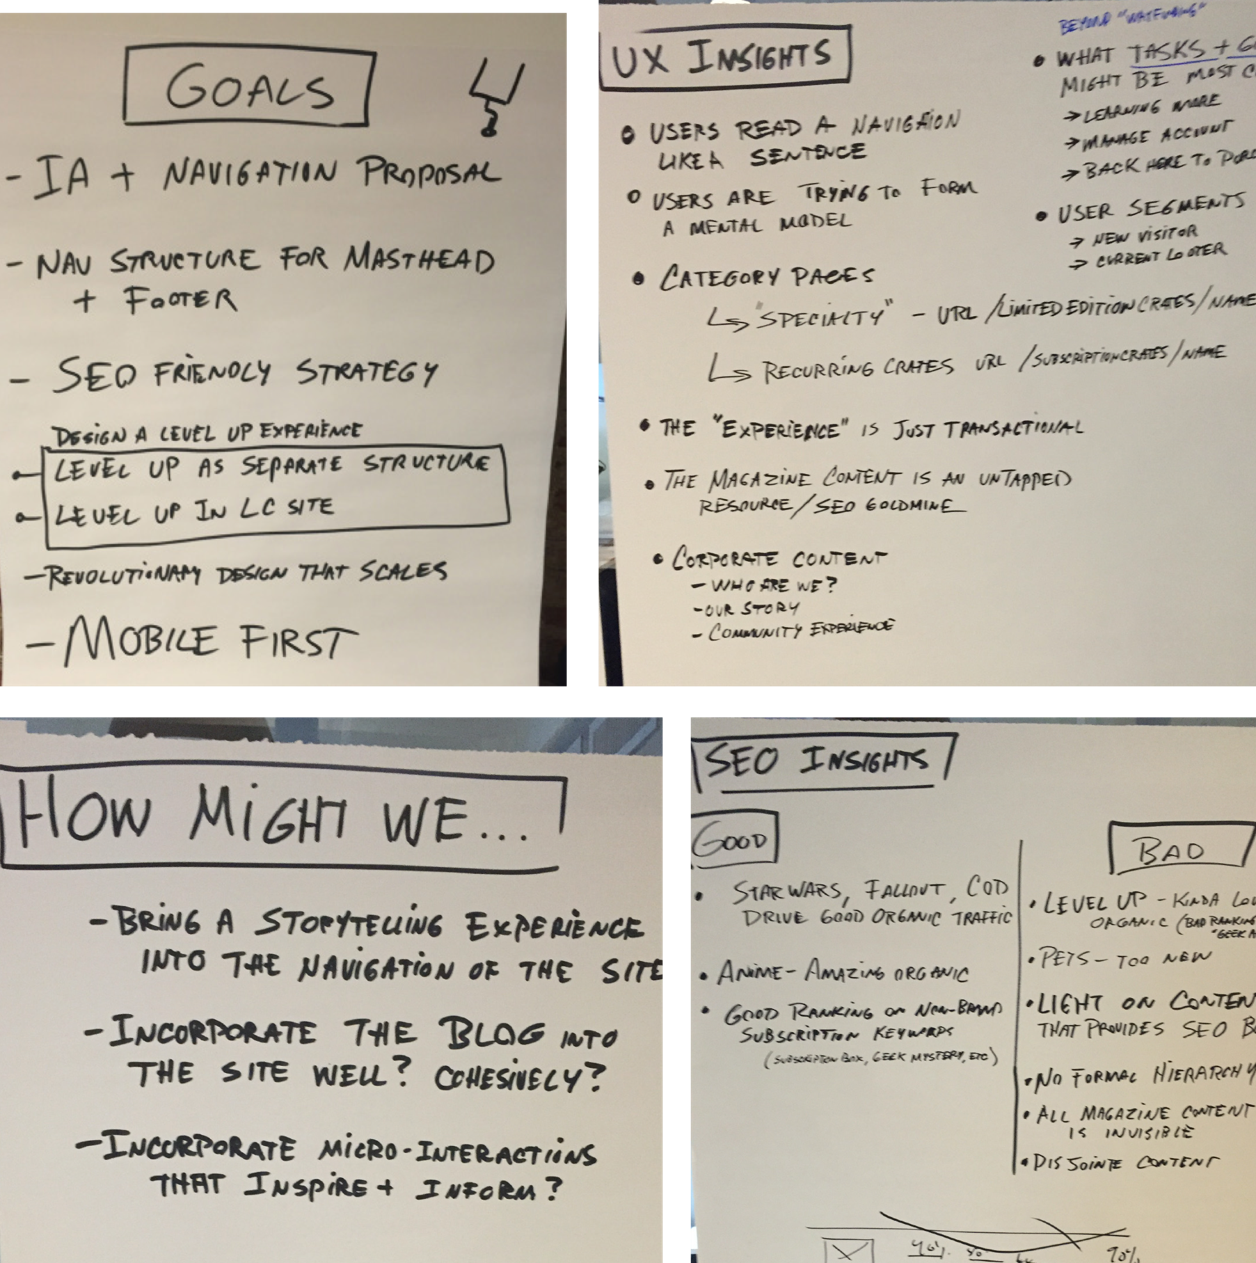 GOALS
- IA + NAVIGATION PROPOSAL
- NAV STRUCTURE FOR MASTHEAD
+ FOOTER
- SEO FRIENDLY STRATEGY
DESIGN A LEVEL UP EXPERIENCE
LEVEL UP AS SEPARATE STRUCTURE
LEVEL UP IN LC SITE
- REVOLUTIONARY DESIGN THAT SCALES
- MOBILE FIRST
UX INSIGHTS
• USERS READ A NAVIGATION
LIKE A SENTENCE
• USERS ARE TRYING TO FORM
A MENTAL MODEL
• CATEGORY PAGES
↳ "SPECIALTY" - URL /LIMITEDEDITIONCRATES/NAME
↳ RECURRING CRATES URL /SUBSCRIPTIONCRATES/NAME
• THE "EXPERIENCE" IS JUST TRANSACTIONAL
• THE MAGAZINE CONTENT IS AN UNTAPPED
RESOURCE/SEO GOLDMINE
• CORPORATE CONTENT
- WHO ARE WE?
- OUR STORY
- COMMUNITY EXPERIENCE
BEYOND
• WHAT TASKS +
MIGHT BE MOST
→ LEARNING MORE
→ MANAGE ACCOUNT
→ BACK HERE TO
• USER SEGMENTS
→ NEW VISITOR
→ CURRENT LOOTER
HOW MIGHT WE...
- BRING A STORYTELLING EXPERIENCE
INTO THE NAVIGATION OF THE SITE
- INCORPORATE THE BLOG INTO
THE SITE WELL? COHESIVELY?
- INCORPORATE MICRO-INTERACTIONS
THAT INSPIRE + INFORM?
SEO INSIGHTS
GOOD
• STAR WARS, FALLOUT, COD
DRIVE GOOD ORGANIC TRAFFIC
• ANIME - AMAZING ORGANIC
• GOOD RANKING ON NON-BRAND
SUBSCRIPTION KEYWORDS
(SUBSCRIPTION BOX, GEEK MYSTERY, ETC)
BAD
• LEVEL UP - KINDA
ORGANIC (BAD RANKING
"GEEK
• PETS - TOO NEW
• LIGHT ON CONTENT
THAT PROVIDES SEO
• NO FORMAL HIERARCHY
• ALL MAGAZINE CONTENT
IS INVISIBLE
• DISJOINTE CONTENT
40%
90%